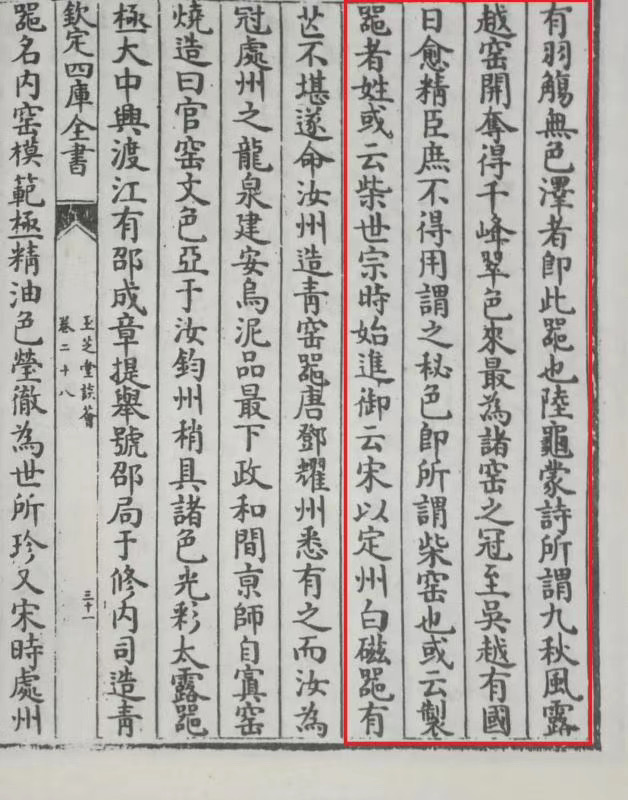 有羽觴無色澤者即此器也陸龜蒙詩所謂九秋風露
越窑開奪得千峰翠色來最為諸窑之冠至吳越有國
日愈精臣庶不得用謂之秘色即所謂柴窑也或云製
器者姓或云柴世宗時始進御云宋以定州白磁器有
芒不堪遂命汝州造青窑器唐鄧耀州悉有之而汝為
冠處州之龍泉建安烏泥品最下政和間京師自寘窑
燒造曰官窑文色亞于汝鈞州稍具諸色光彩太露器
極大中興渡江有邵成章提舉號邵局于修内司造青
欽定四庫全書
玉芝堂談薈
卷二十八
三十一
器名内窑模範極精油色瑩徹為世所珍又宋時處州